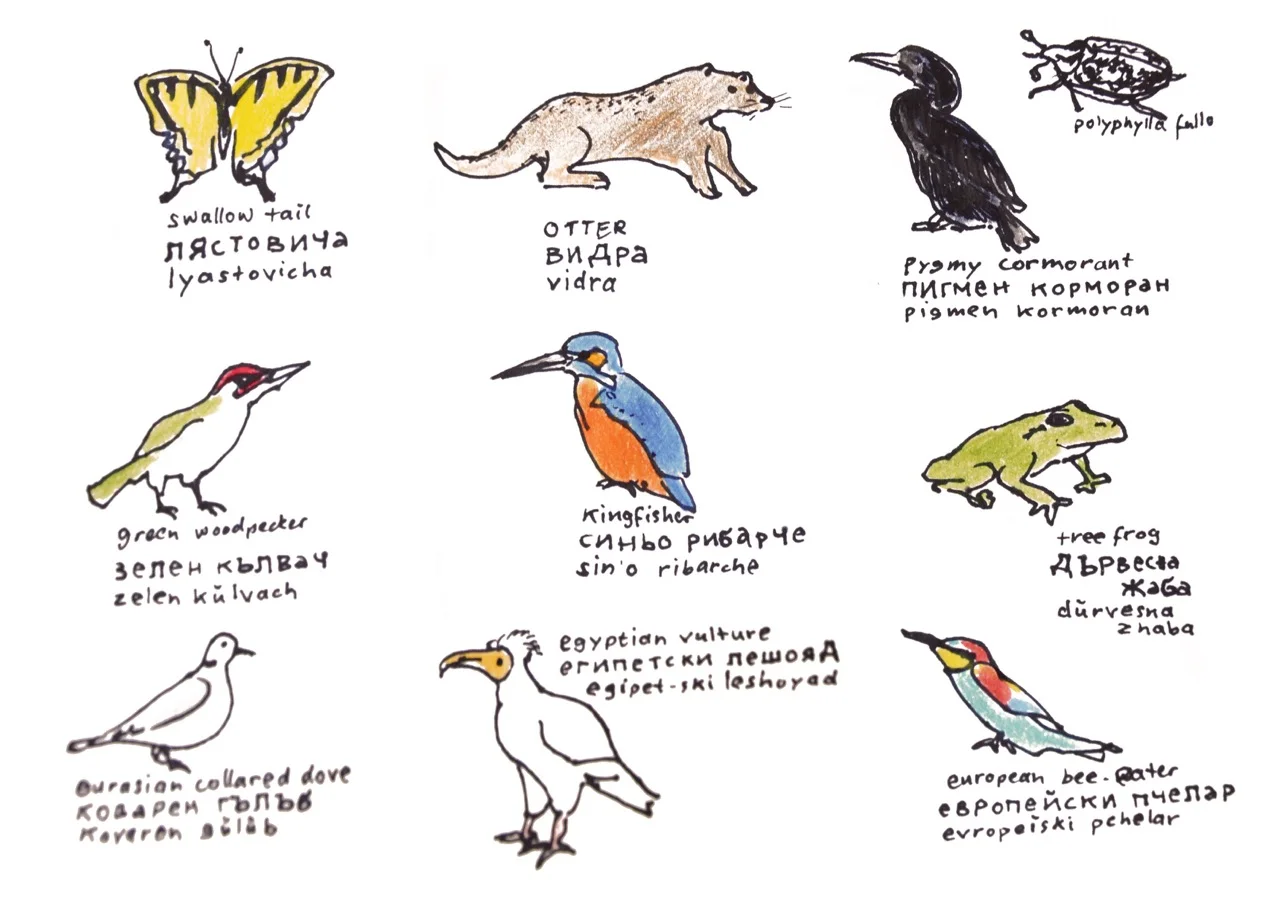 swallow tail
ЛЯСТОВИЧА
lyastovicha
OTTER
ВИДРА
vidra
polyphylla fullo
Pygmy cormorant
ПИГМЕН КОРМОРАН
pigmen kormoran
green woodpecker
ЗЕЛЕН КЪЛВАЧ
zelen kŭlvach
Kingfisher
СИНЬО РИБАРЧЕ
sin'o ribarche
tree frog
ДЪРВЕСНА
ЖАБА
dŭrvesna
zhaba
eurasian collared dove
КОВАРЕН ГЪЛЪБ
Kovaren gŭlŭb
egyptian vulture
ЕГИПЕТСКИ ЛЕШОЯД
egipet-ski leshoyad
european bee-eater
ЕВРОПЕЙСКИ ПЧЕЛАР
evropeĭski pchelar